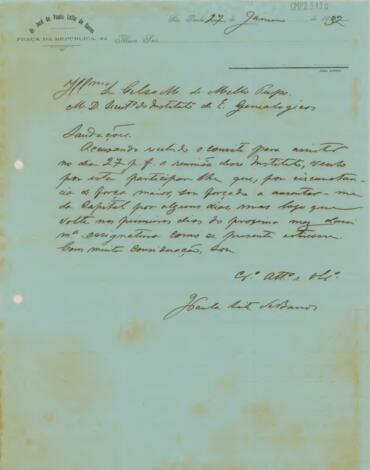 Dr. José de Paula Leite de Barros
PRAÇA DA REPUBLICA,
São Paulo 27 de Janeiro de 1932
Illmo. Sr. Celso M. de Mello Pupo
M. D. Secretº do Instituto de E. Genealogicos
Saudações.
Accusando recebido o convite para assistir
no dia 27 p. f. a reunião desse Instituto, venho
por esta participar lhe que, por circunstan-
cia de força maior, sou forçado a ausentar-me
da Capital por alguns dias mas logo que
volte nos primeiros dias do proximo mez darei
mª assignatura como se presente estivesse.
Com muita consideração, sou
Crº. Attº. e Obrº.
JPaula Leite de Barros